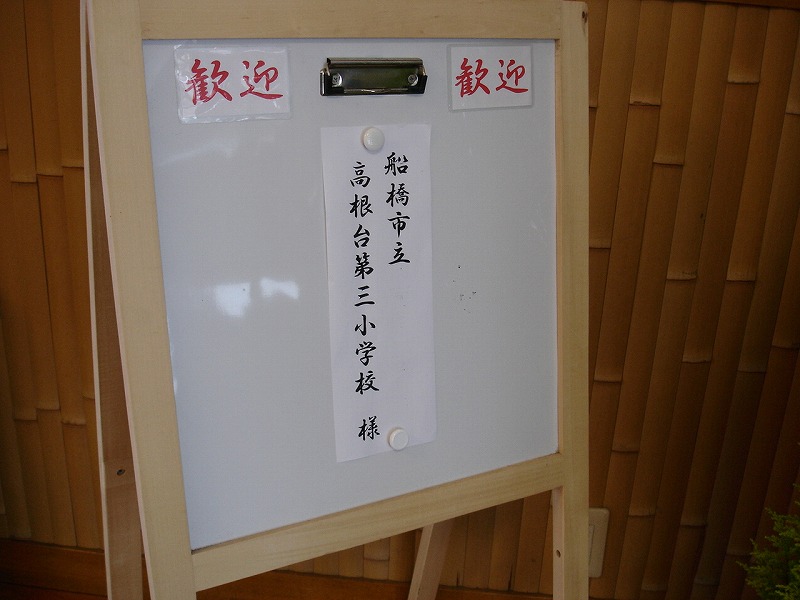 歓迎
歓迎
船橋市立
高根台第三小学校 様